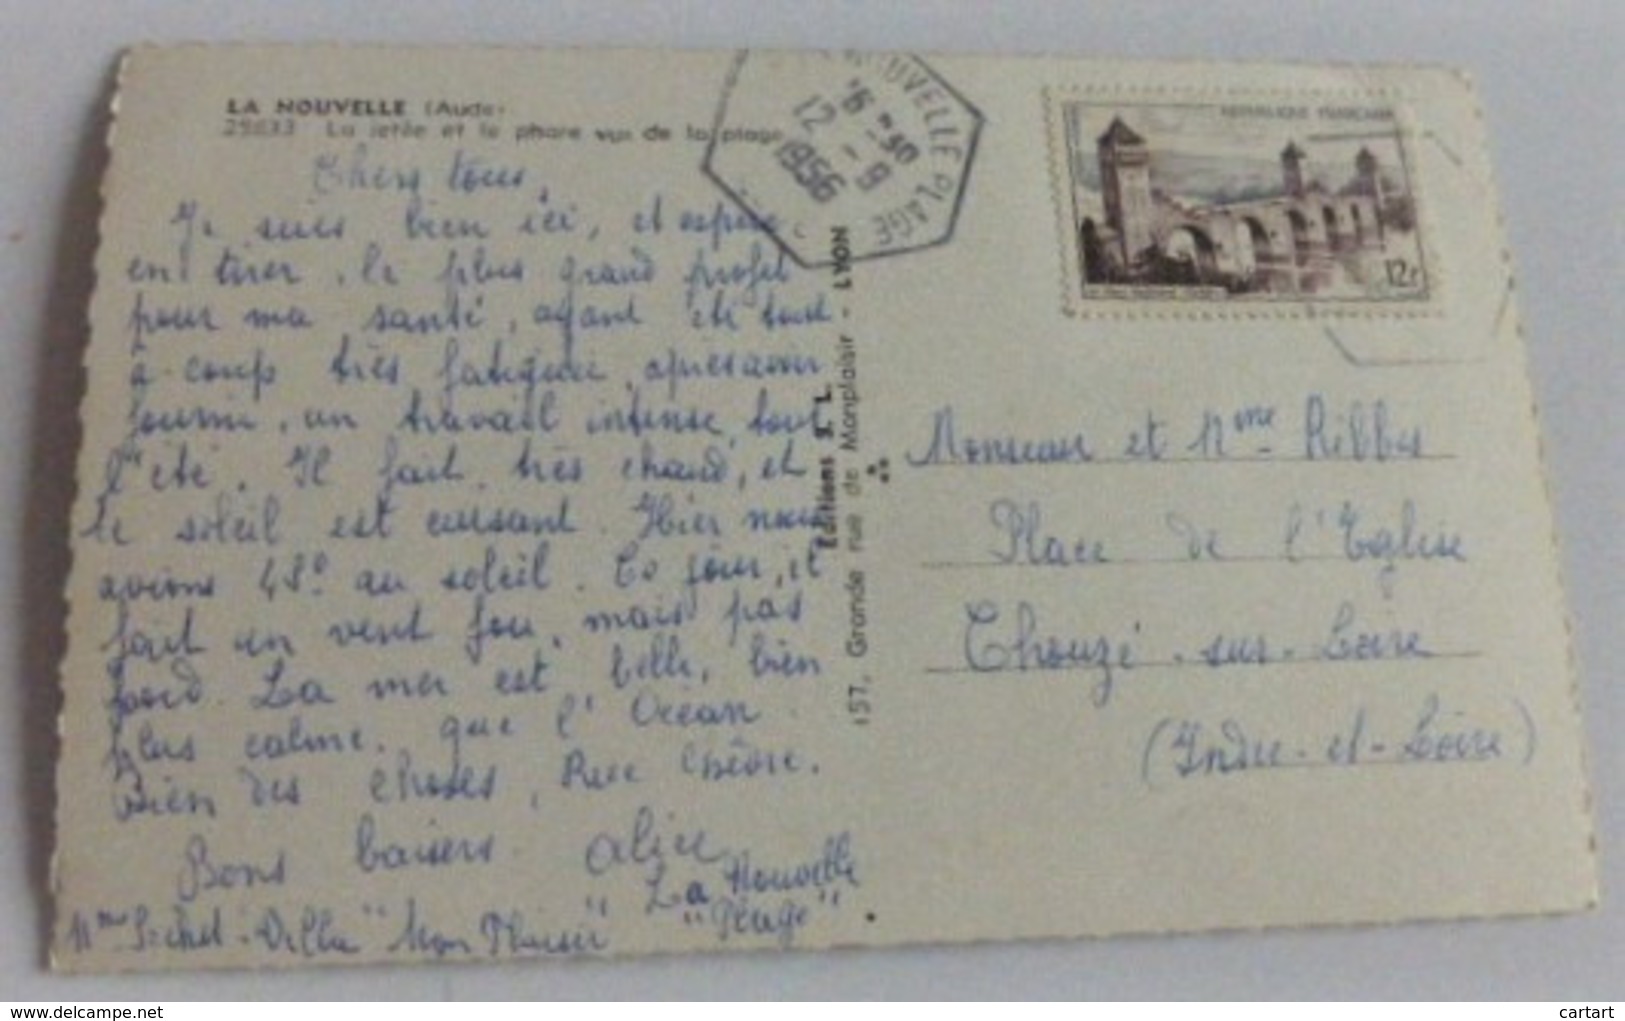 LA NOUVELLE (Aude)
25633 La jetée et le phare vus de la plage
NOUVELLE PLAGE
12 - 9
1956
REPUBLIQUE FRANÇAISE
12F
Chers tous,
Je suis bien ici, et espère
en tirer le plus grand profit
pour ma santé, ayant été tout
à coup très fatiguée, après avoir
fourni un travail intense, tout
l'été. Il fait très chaud, et
le soleil est cuisant. Hier nous
avions 48° au soleil. Ce jour, il
fait un vent fou, mais pas
froid. La mer est belle, bien
plus calme que l'Océan.
Bien des choses, Rue
Bons baisers. Alice
La Nouvelle
"Plage"
Mme Villa "Mon Plaisir"
Editions S. L.
157, Grande rue de Monplaisir - LYON
Monsieur et Mme Ribbes
Place de l'Eglise
Chouzé-sur-Loire
(Indre-et-Loire)
www.delcampe.net
cartart